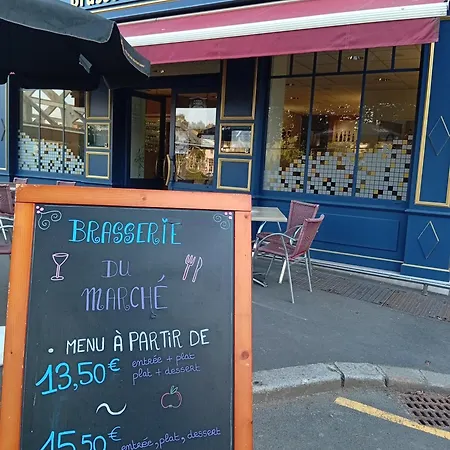 BRASSERIE
DU
MARCHÉ
• MENU À PARTIR DE
13,50€ entrée + plat
plat + dessert
~
15,50€ entrée, plat, dessert